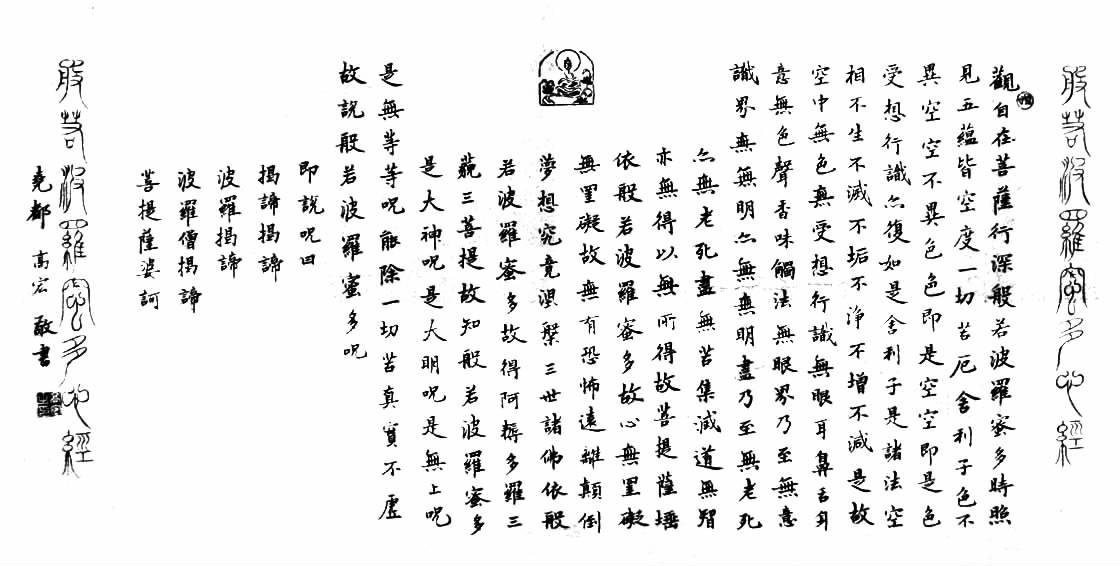 般若波羅密多心經
觀自在菩薩行深般若波羅蜜多時照
見五蘊皆空度一切苦厄舍利子色不
異空空不異色色即是空空即是色
受想行識亦復如是舍利子是諸法空
相不生不滅不垢不淨不增不減是故
空中無色無受想行識無眼耳鼻舌身
意無色聲香味觸法無眼界乃至無意
識界無無明亦無無明盡乃至無老死
亦無老死盡無苦集滅道無智
亦無得以無所得故菩提薩埵
依般若波羅蜜多故心無罣礙
無罣礙故無有恐怖遠離顛倒
夢想究竟涅槃三世諸佛依般
若波羅蜜多故得阿耨多羅三
藐三菩提故知般若波羅蜜多
是大神呪是大明呪是無上呪
是無等等呪能除一切苦真實不虛
故說般若波羅蜜多呪
即說呪曰
揭諦揭諦
波羅揭諦
波羅僧揭諦
菩提薩婆訶
般若波羅密多心經
堯都高宏敬書